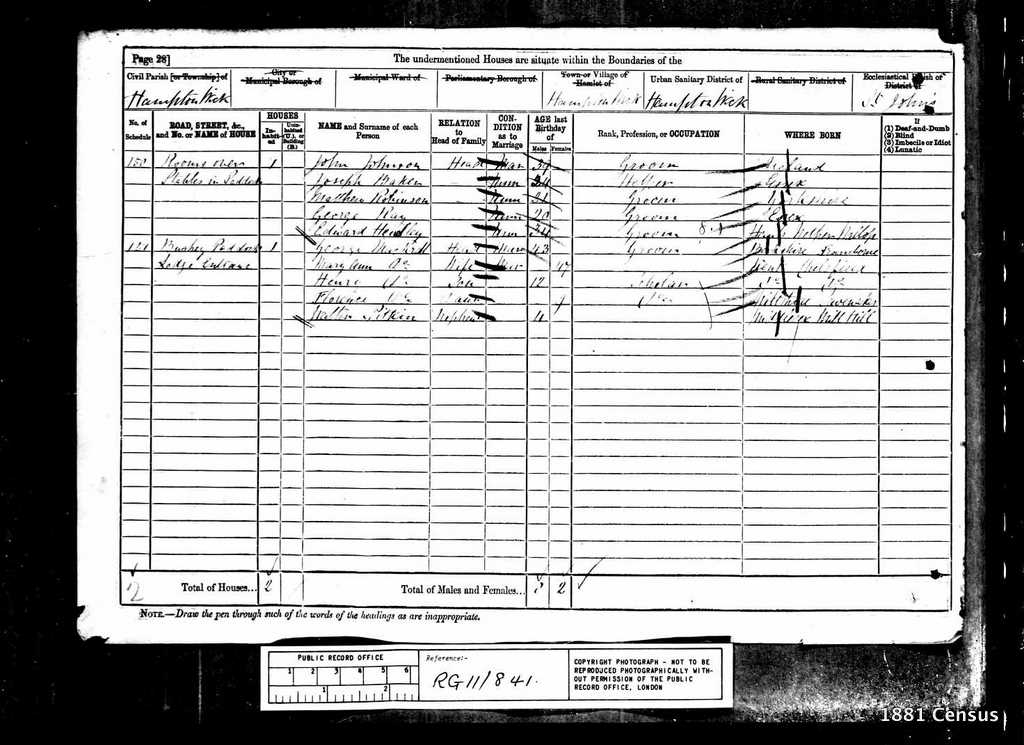 Page 28]
The undermentioned Houses are situate within the Boundaries of the
Civil Parish [or Township] of
City or Municipal Borough of
Municipal Ward of
Parliamentary Borough of
Town or Village of Hamlet of
Urban Sanitary District of
Rural Sanitary District of
Ecclesiastical Parish or District of
Hampton Wick
Hampton Wick
Hampton Wick
St John's
No. of Schedule
ROAD, STREET, &c., and No. or NAME of HOUSE
HOUSES
Inhabited
Uninhabited (U.), or Building (B.)
NAME and Surname of each Person
RELATION to Head of Family
CONDITION as to Marriage
AGE last Birthday of
Males
Females
Rank, Profession, or OCCUPATION
WHERE BORN
If
(1) Deaf-and-Dumb
(2) Blind
(3) Imbecile or Idiot
(4) Lunatic
150 Rooms over 1 John Johnson Head Mar Groom Ireland
Stables in Paddock Joseph Baker Unm Helper
Matthew Robinson Unm 21 Groom
George Ray Unm 20 Groom Essex
Edward Unm Groom
Bushey Paddock 1 George Head Mar 43 Groom
Lodge Mary Ann Do Wife Mar 47 Kent
Henry Do Son 12 Scholar Do Do
Florence Do Do
Walter Nephew 4 Middlesex Mill Hill
2 Total of Houses... 2 Total of Males and Females... 2
NOTE.—Draw the pen through such of the words of the headings as are inappropriate.
PUBLIC RECORD OFFICE
1 2 3 4 5 6
1 2
Reference:-
RG 11/841.
COPYRIGHT PHOTOGRAPH - NOT TO BE
REPRODUCED PHOTOGRAPHICALLY WITH-
OUT PERMISSION OF THE PUBLIC
RECORD OFFICE, LONDON
1881 Census